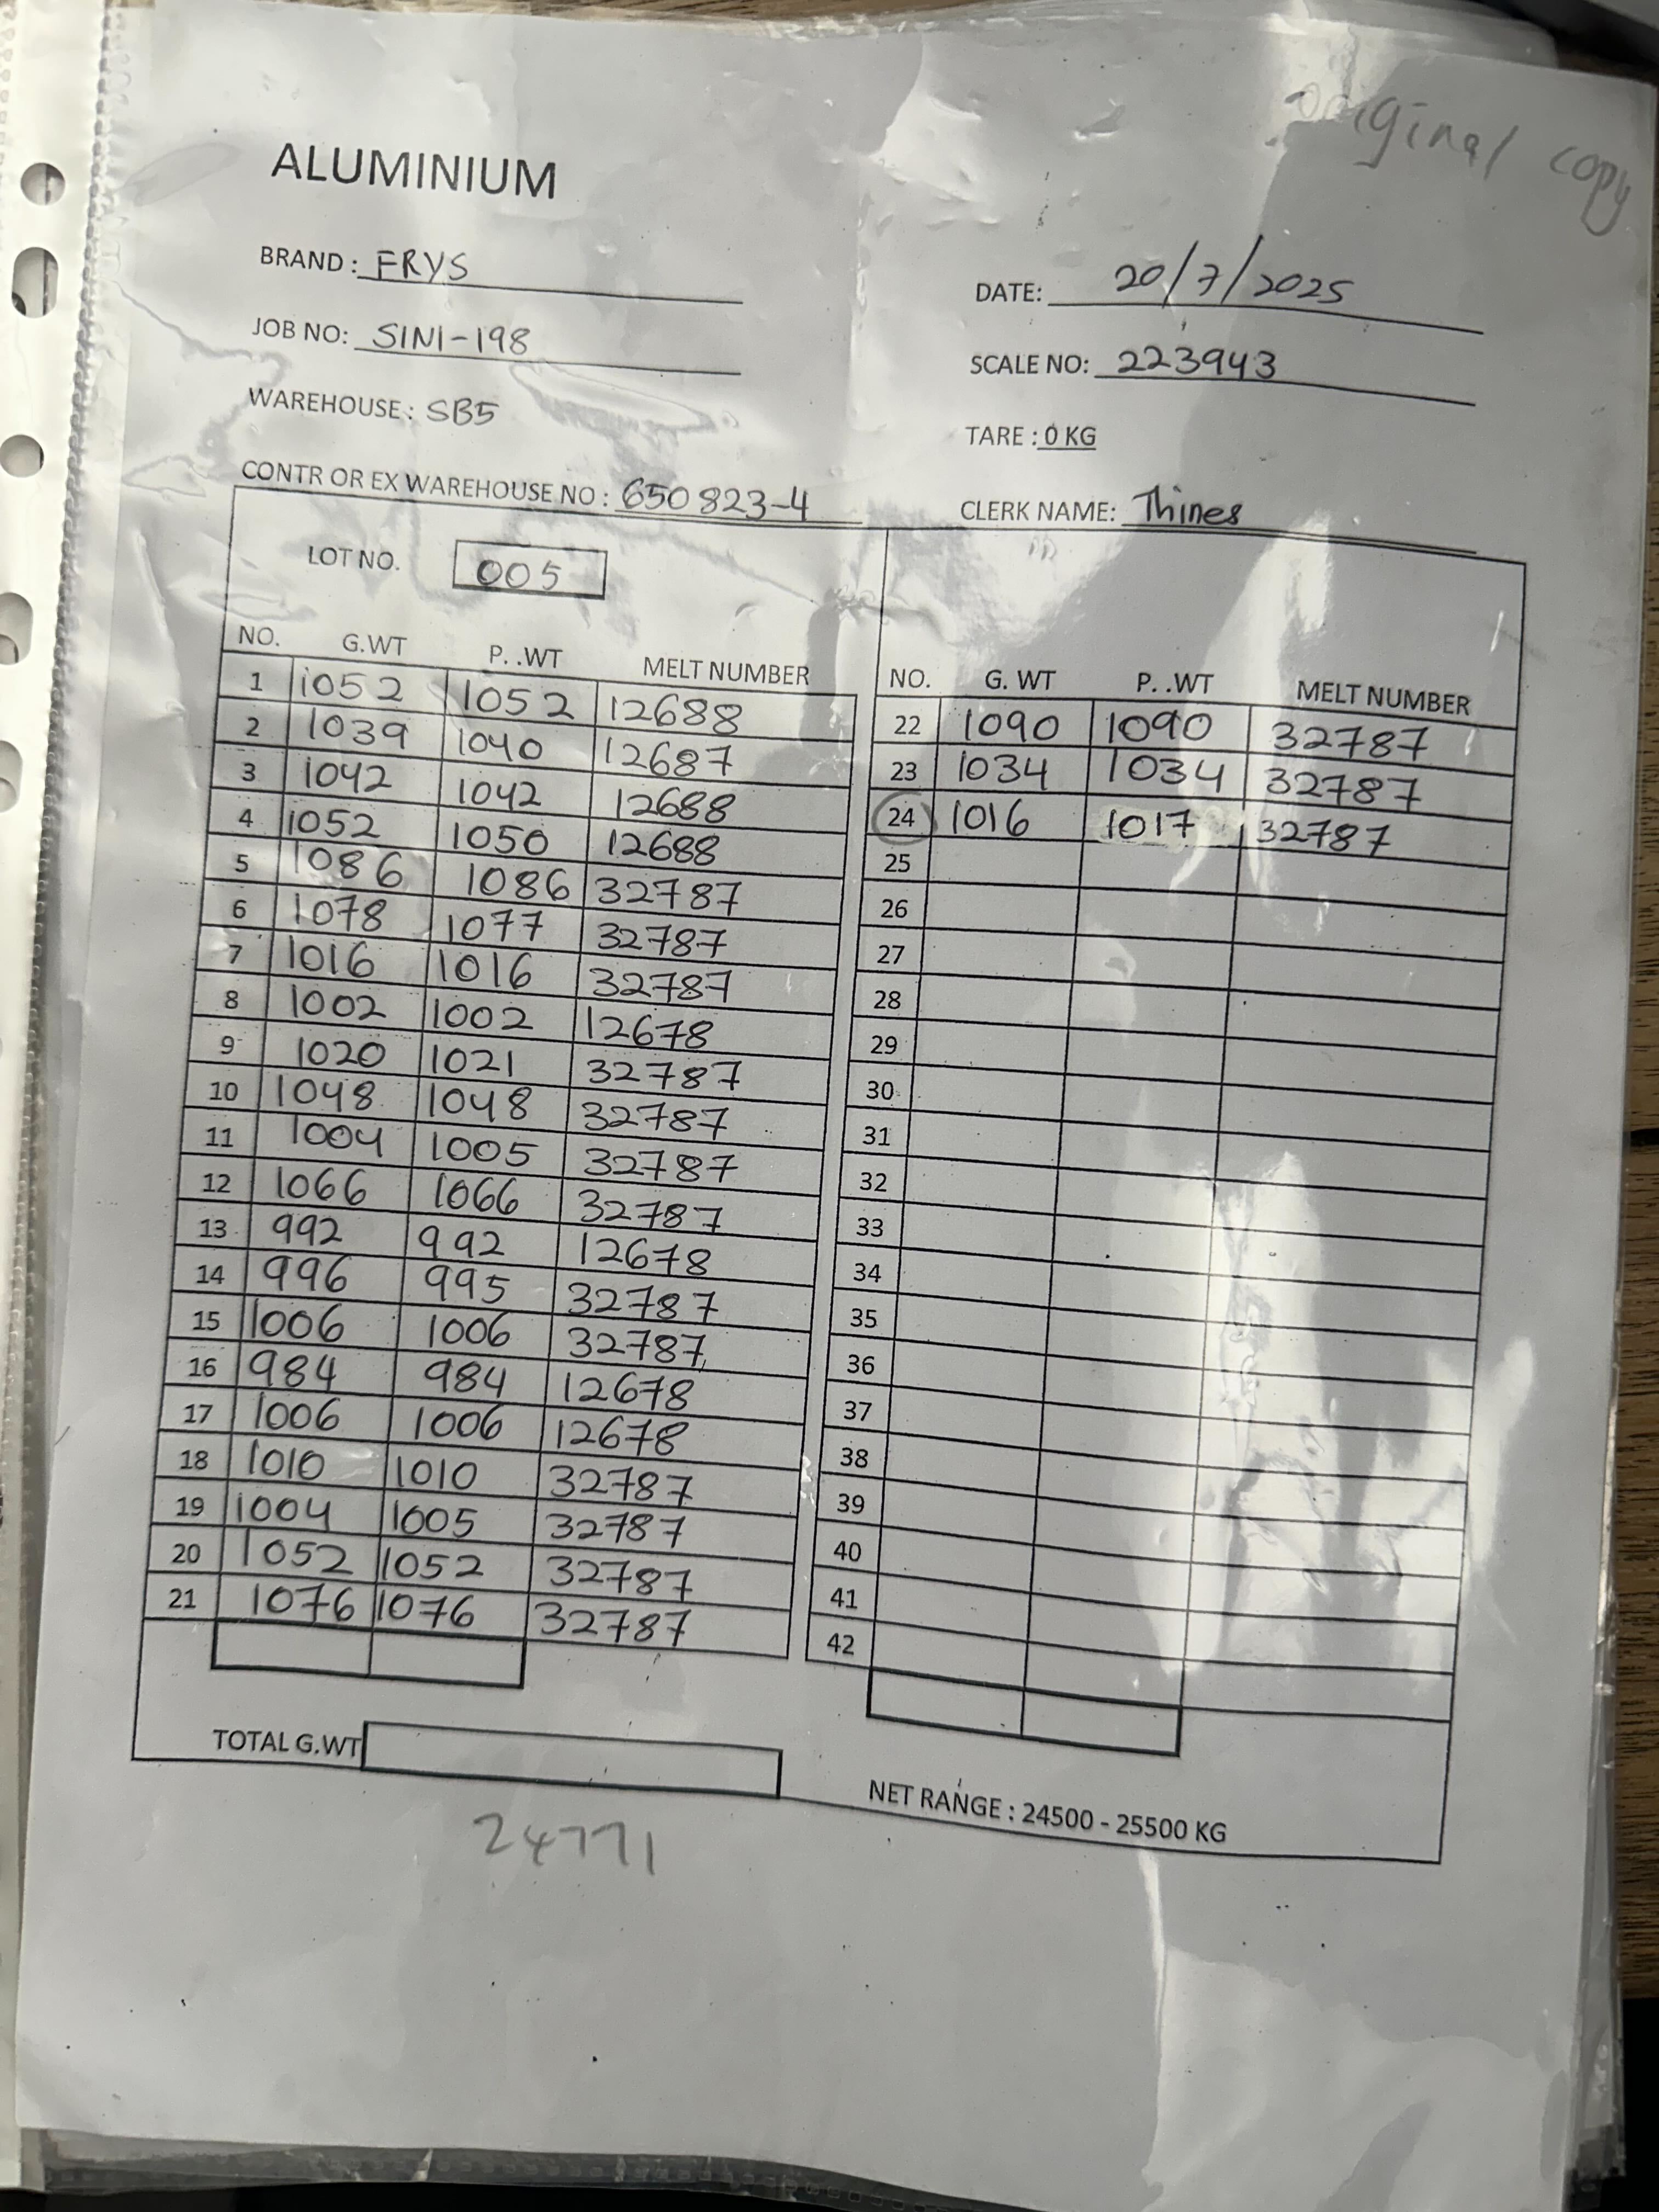 original copy
ALUMINIUM
BRAND : FRYS
DATE: 20/7/2025
JOB NO: SINI-198
SCALE NO: 223943
WAREHOUSE : SB5
TARE : 0 KG
CONTR OR EX WAREHOUSE NO : 650823-4
CLERK NAME: Thines
LOT NO. 005
NO. G.WT P. .WT MELT NUMBER
1 1052 1052 12688
2 1039 1040 12687
3 1042 1042 12688
4 1052 1050 12688
5 1086 1086 32787
6 1078 1077 32787
7 1016 1016 32787
8 1002 1002 12678
9 1020 1021 32787
10 1048 1048 32787
11 1004 1005 32787
12 1066 1066 32787
13 992 992 12678
14 996 995 32787
15 1006 1006 32787
16 984 984 12678
17 1006 1006 12678
18 1010 1010 32787
19 1004 1005 32787
20 1052 1052 32787
21 1076 1076 32787
NO. G. WT P. .WT MELT NUMBER
22 1090 1090 32787
23 1034 1034 32787
24 1016 1017 32787
25
26
27
28
29
30
31
32
33
34
35
36
37
38
39
40
41
42
TOTAL G.WT
NET RANGE : 24500 - 25500 KG
24771